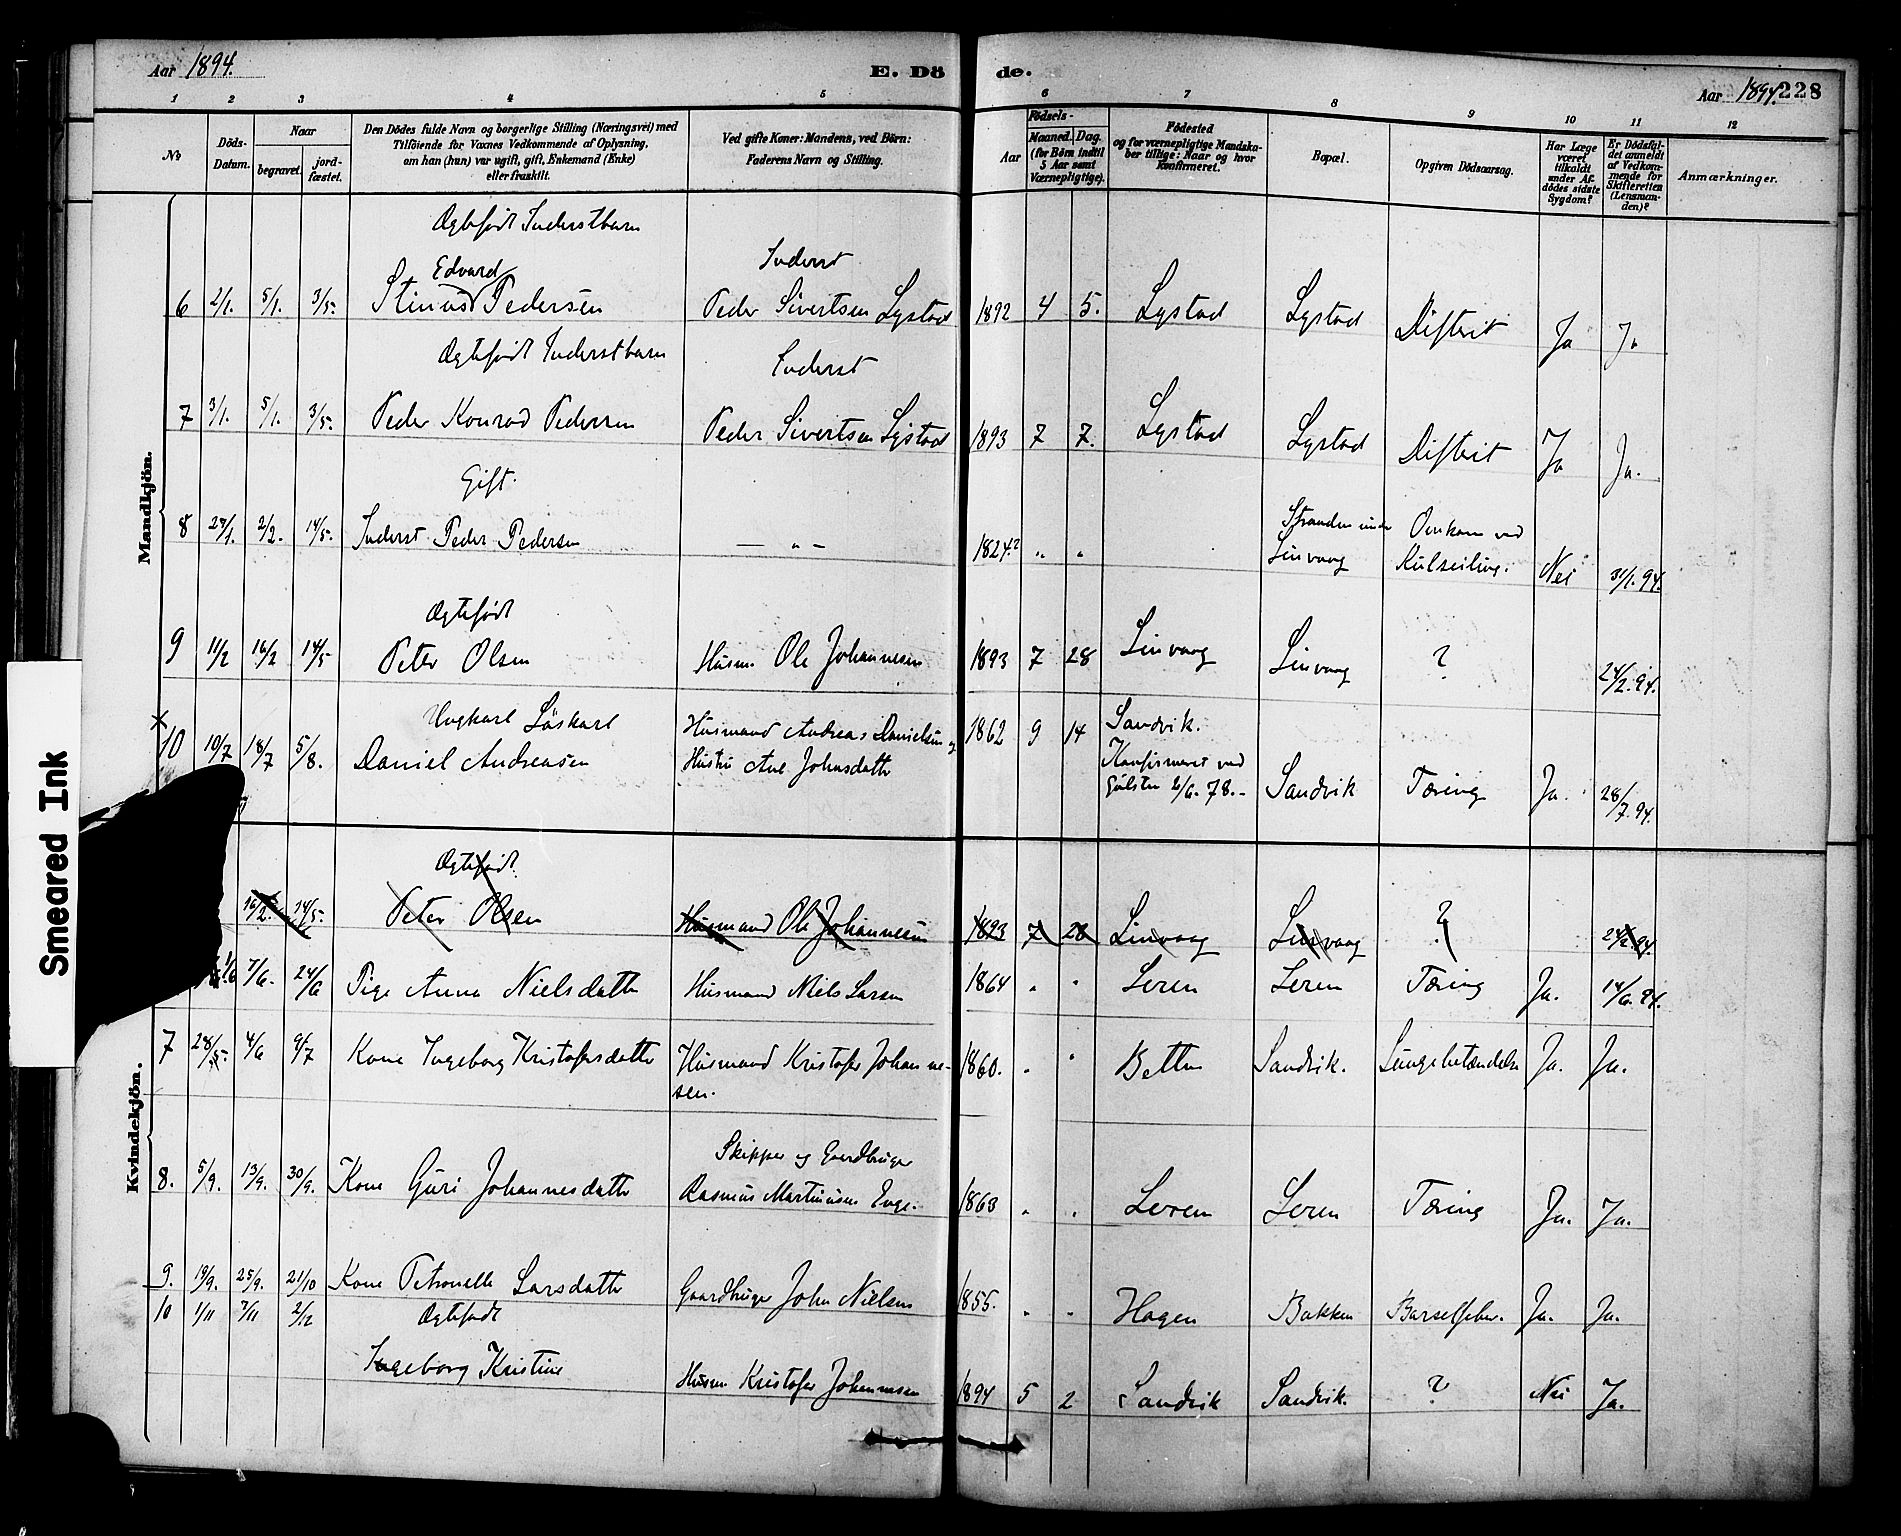 Aar 1894.
E. Dö
de.
Aar 1894. 228
1 2 3 4 5 6 7 8 9 10 11 12
No
Döds-Datum.
Naar
begravet.
jord-fæstet.
Den Dödes fulde Navn og borgerlige Stilling (Næringsvei) med
Tilföiende for Voxnes Vedkommende af Oplysning,
om han (hun) var ugift, gift, Enkemand (Enke)
eller fraskilt.
Ved gifte Koner: Mandens, ved Börn:
Faderens Navn og Stilling.
Födsels-
Aar
Maaned. Dag.
(for Börn indtil
5 Aar samt
Værnepligtige).
Födested
og for værnepligtige Mandska-
ber tillige: Naar og hvor
Konfirmeret.
Bopæl.
Opgiven Dödsaarsag.
Har Læge
været
tilkaldt
under Af-
dödes sidste
Sygdom?
Er Dödsfal-
det anmeldt
af Vedkom-
mende for
Skifteretten
(Lensman-
den)?
Anmærkninger.
Mandkjön.
Ægtefødt Inderstbarn
Edvard
Inderst
6 2/1. 5/1. 3/5. Stinus Pedersen Peder Sivertsen Lystad 1892 4 5. Lystad Lystad Difterit Ja Ja
Ægtefødt Inderstbarn
Inderst
7 3/1. 5/1. 3/5. Peder Konrad Pedersen Peder Sivertsen Lystad 1893 7 7. Lystad Lystad Difterit Ja Ja.
Gift.
8 2/2. 14/5. Inderst Peder Pedersen — „ — 1824? „ „ Stranden under Linvaag Omkom ved Kulseiling. Nei 31/1.94.
Ægtefødt
9 11/2 16/2 14/5 Peter Olsen Husm. Ole Johannesen 1893 7 28 Linvaag Linvaag ? 24/2.94.
Ungkarl Løskarl
10 10/7 18/7 5/8. Daniel Andreasen Husmand Andreas Danielsen og
Hustru Ane Johnsdatter 1862 9 14 Sandvik.
Konfirmeret ved
78. - Sandvik Tæring Ja. 28/7.94.
Kvindekjön.
Ægtefødt.
16/2. 14/5. Peter Olsen Husmand Ole Johannesen 1893 7 28 Linvaag Linvaag ? 24/2.94.
1/6 7/6. 24/6 Pige Anna Nielsdatter Husmand Niels Larsen 1864 „ „ Leren Leren Tæring Ja. 14/6.94.
7 28/5. 4/6 9/7 Kone Ingeborg Kristofersdatter Husmand Kristofer Johanne-
sen. 1860. „ „ Betten Sandvik. Lungebetændelse Ja. Ja.
Skipper og Gaardbruger
8. 5/9. 13/9. 30/9. Kone Guri Johannesdatter Rasmus Martinusen Enge. 1863 „ „ Leren Leren Tæring Ja. Ja.
9. 19/9. 25/9. 21/10 Kone Petronelle Larsdatter Gaardbruger John Nielsen 1855. „ „ Hagen Bakken Barselfeber. Ja. Ja.
10 1/11 7/11 2/12 Ægtefødt
Ingeborg Kristine Husm Kristofer Johannesen 1894 5 2 Sandvik Sandvik. ? Nei Ja.
Smeared Ink